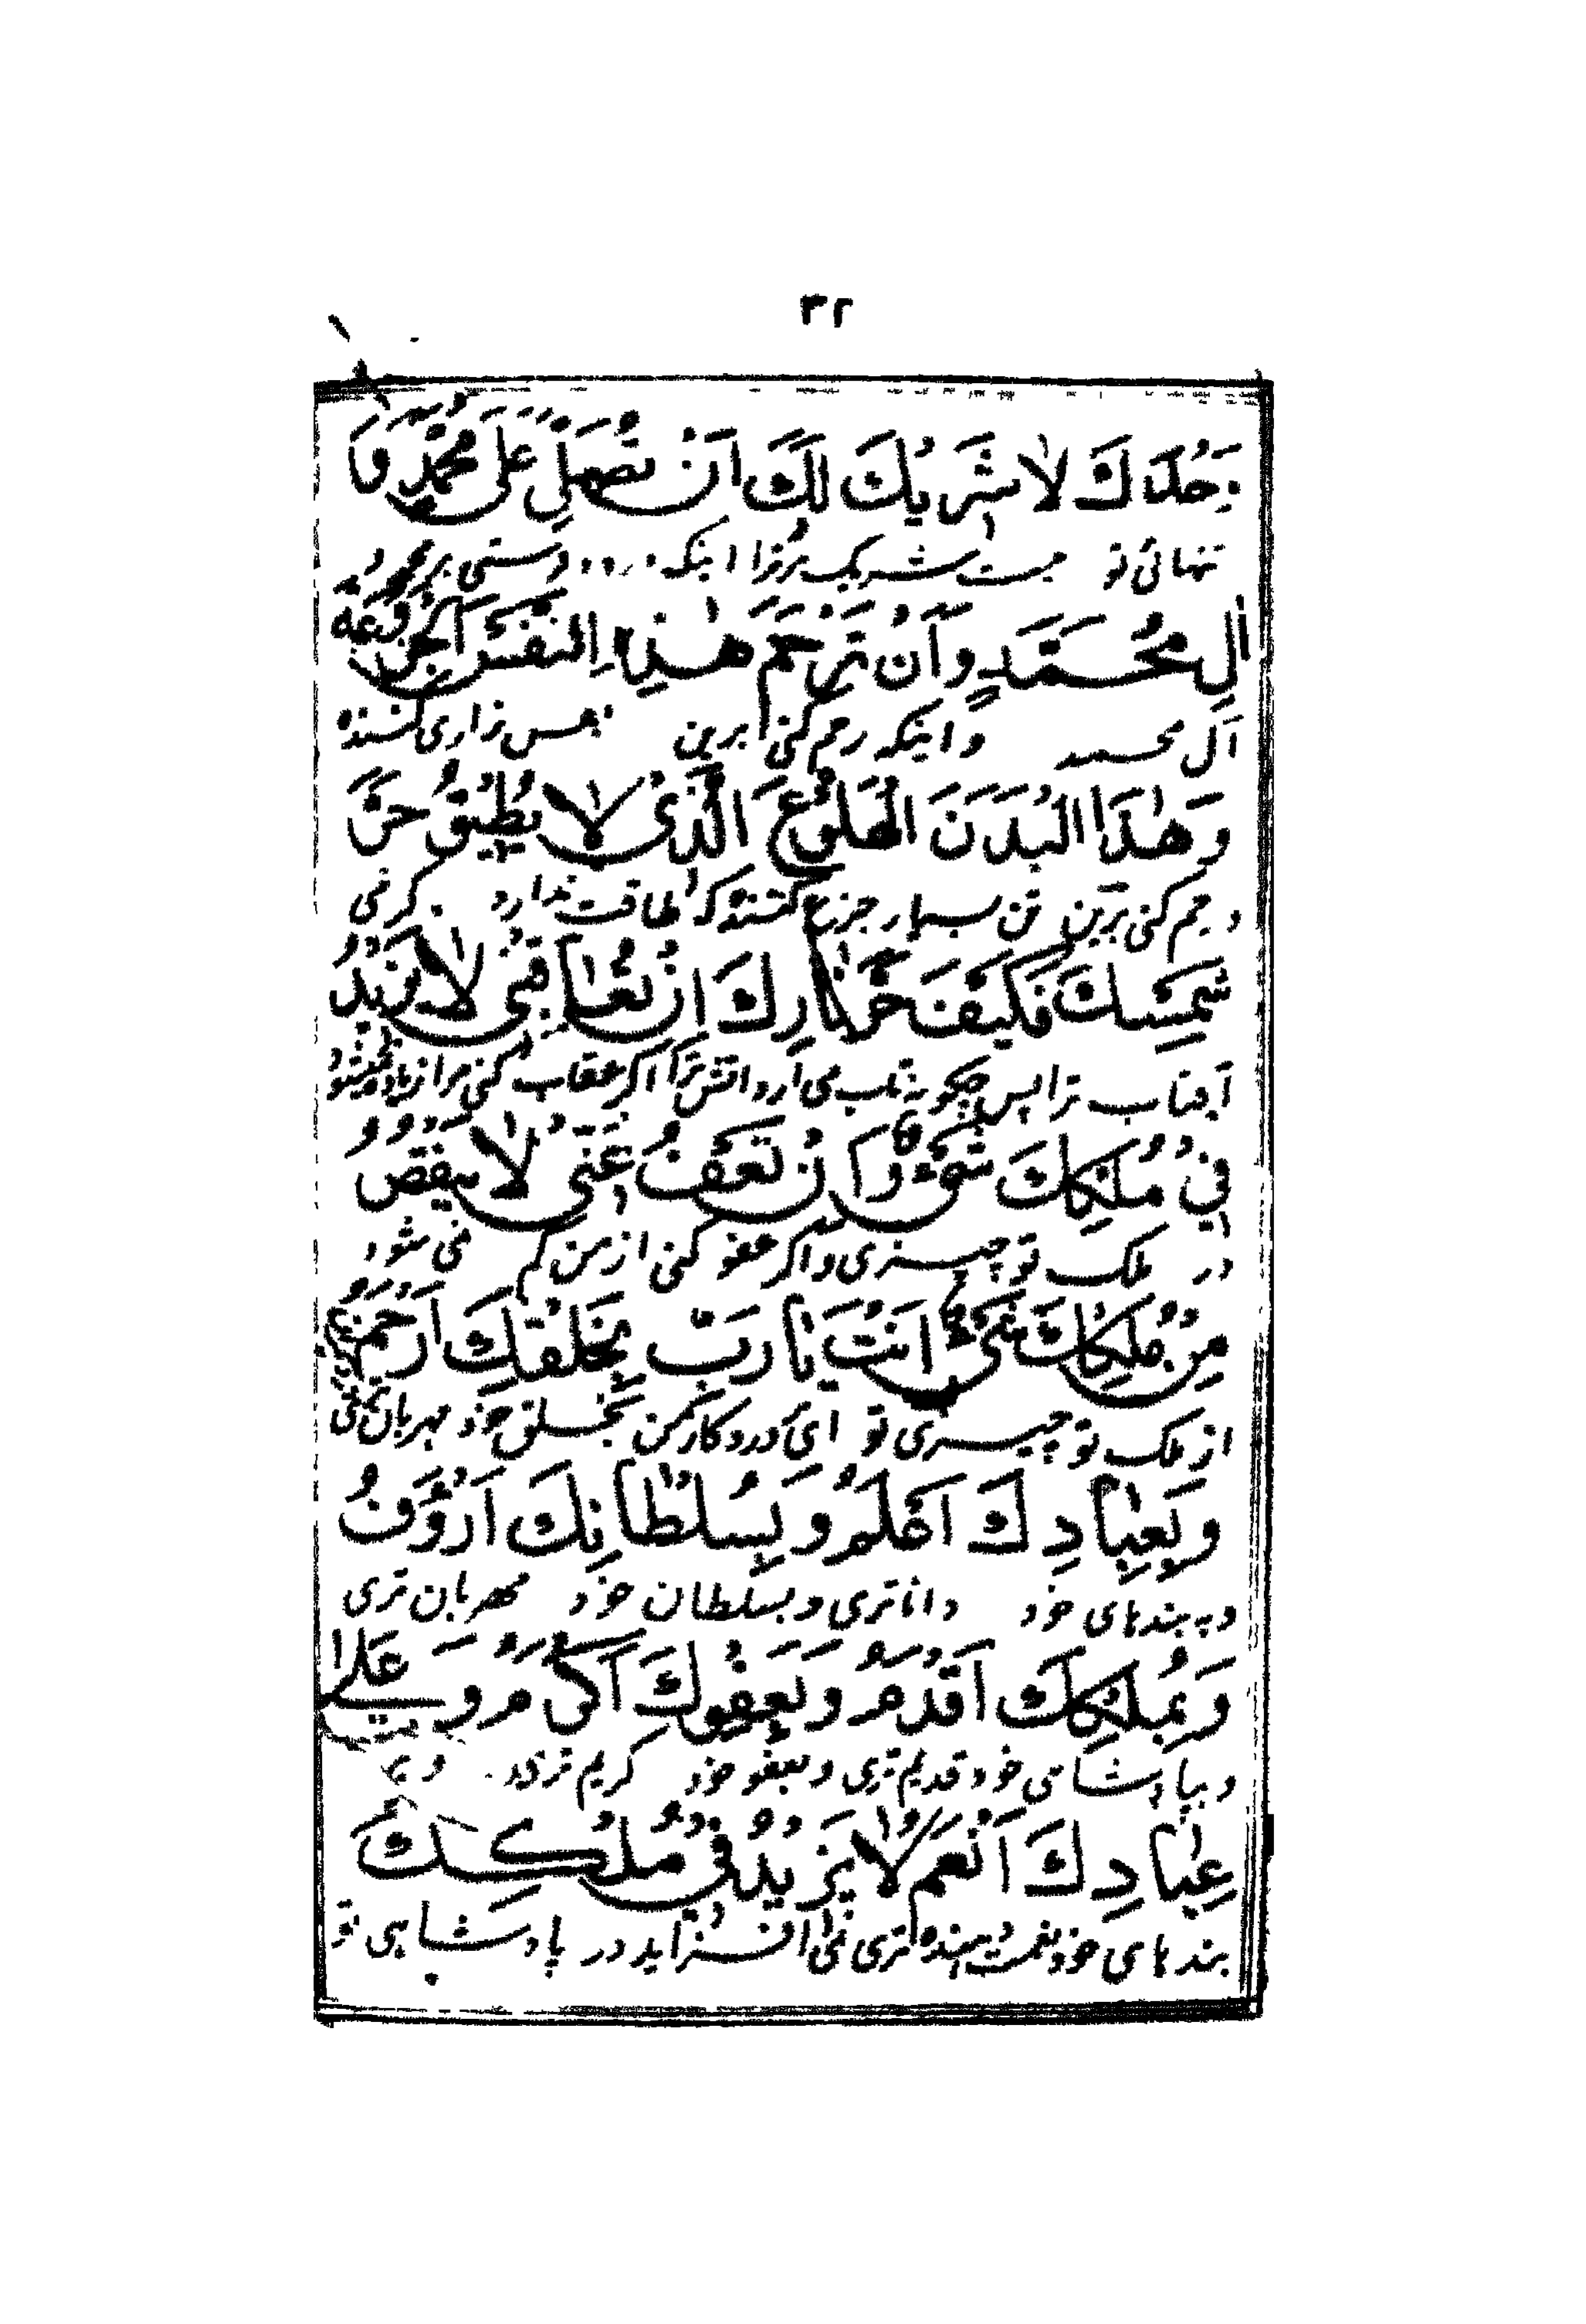 ٣٢
وَحْدَكَ لَا شَرِيْكَ لَكَ اَنْ تُصَلِّيَ عَلٰى مُحَمَّدٍ وَ
تنهائی تو نیست شریک ترا اینکه درود فرستی بر محمد و
اٰلِ مُحَمَّدٍ وَ اَنْ تَرْحَمَ هٰذِهِ النَّفْسَ الْجَزُوْعَةَ
آل محمد و اینکه رحم کنی برین نفس زاری کننده
وَ هٰذَا الْبَدَنَ الْهَلُوْعَ الَّذِيْ لَا يُطِيْقُ حَرَّ
و رحم کنی برین تن بسیار جزع کننده که طاقت ندارد گرمی
شَمْسِكَ فَكَيْفَ حَرَّ نَارِكَ اِنْ تُعَاقِبْنِيْ لَا يَزِيْدُ
آفتاب ترا پس چگونه تاب می آرد آتش ترا اگر عقاب کنی مرا زیاده نمیشود
فِيْ مُلْكِكَ شَيْءٌ وَ اِنْ تَعْفُ عَنِّيْ لَا يَنْقُصُ
در ملک تو چیزی و اگر عفو کنی از من کم نمی شود
مِنْ مُلْكِكَ شَيْءٌ اَنْتَ يَا رَبِّ بِخَلْقِكَ اَرْحَمُ
از ملک تو چیزی تو ای پروردگار من بخلق خود مهربان
وَ بِعِبَادِكَ اَعْلَمُ وَ بِسُلْطَانِكَ اَرْؤَفُ
و به بندهای خود داناتری و بسلطان خود مهربان تری
وَ بِمُلْكِكَ اَقْدَمُ وَ بِعَفْوِكَ اَكْرَمُ وَ عَلٰى
و بپادشاهی خود قدیم تری و بعفو خود کریم تری و بر
عِبَادِكَ اَنْعَمُ لَا يَزِيْدُ فِيْ مُلْكِكَ
بندهای خود نعمت دهنده تری نمی افزاید در پادشاهی تو